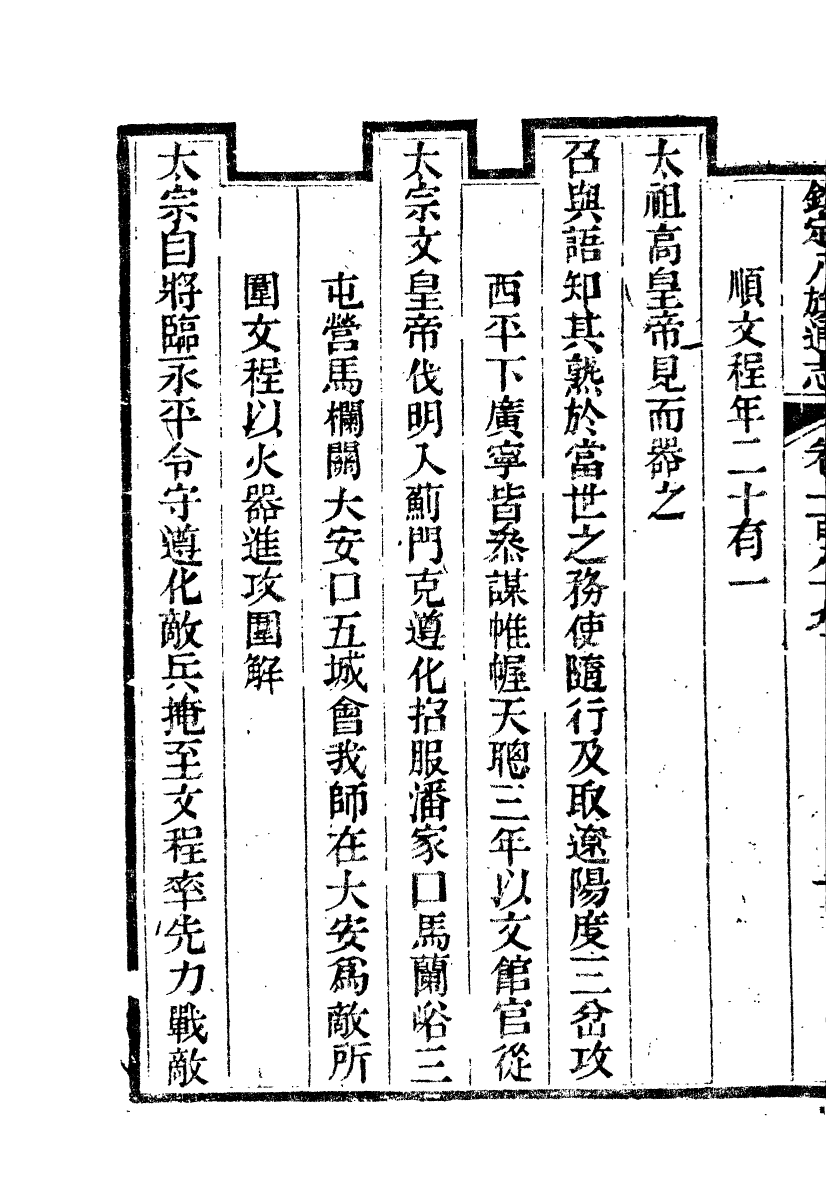 欽定八旗通志 卷一百八十九
順文程年二十有一
太祖高皇帝見而器之
召與語知其熟於當世之務使隨行及取遼陽度三岔攻
西平下廣寧皆叅謀帷幄天聰三年以文館官從
太宗文皇帝伐明入薊門克遵化招服潘家口馬蘭峪三
屯營馬欄關大安口五城會我師在大安爲敵所
圍文程以火器進攻圍解
太宗自將臨永平令守遵化敵兵掩至文程率先力戰敵